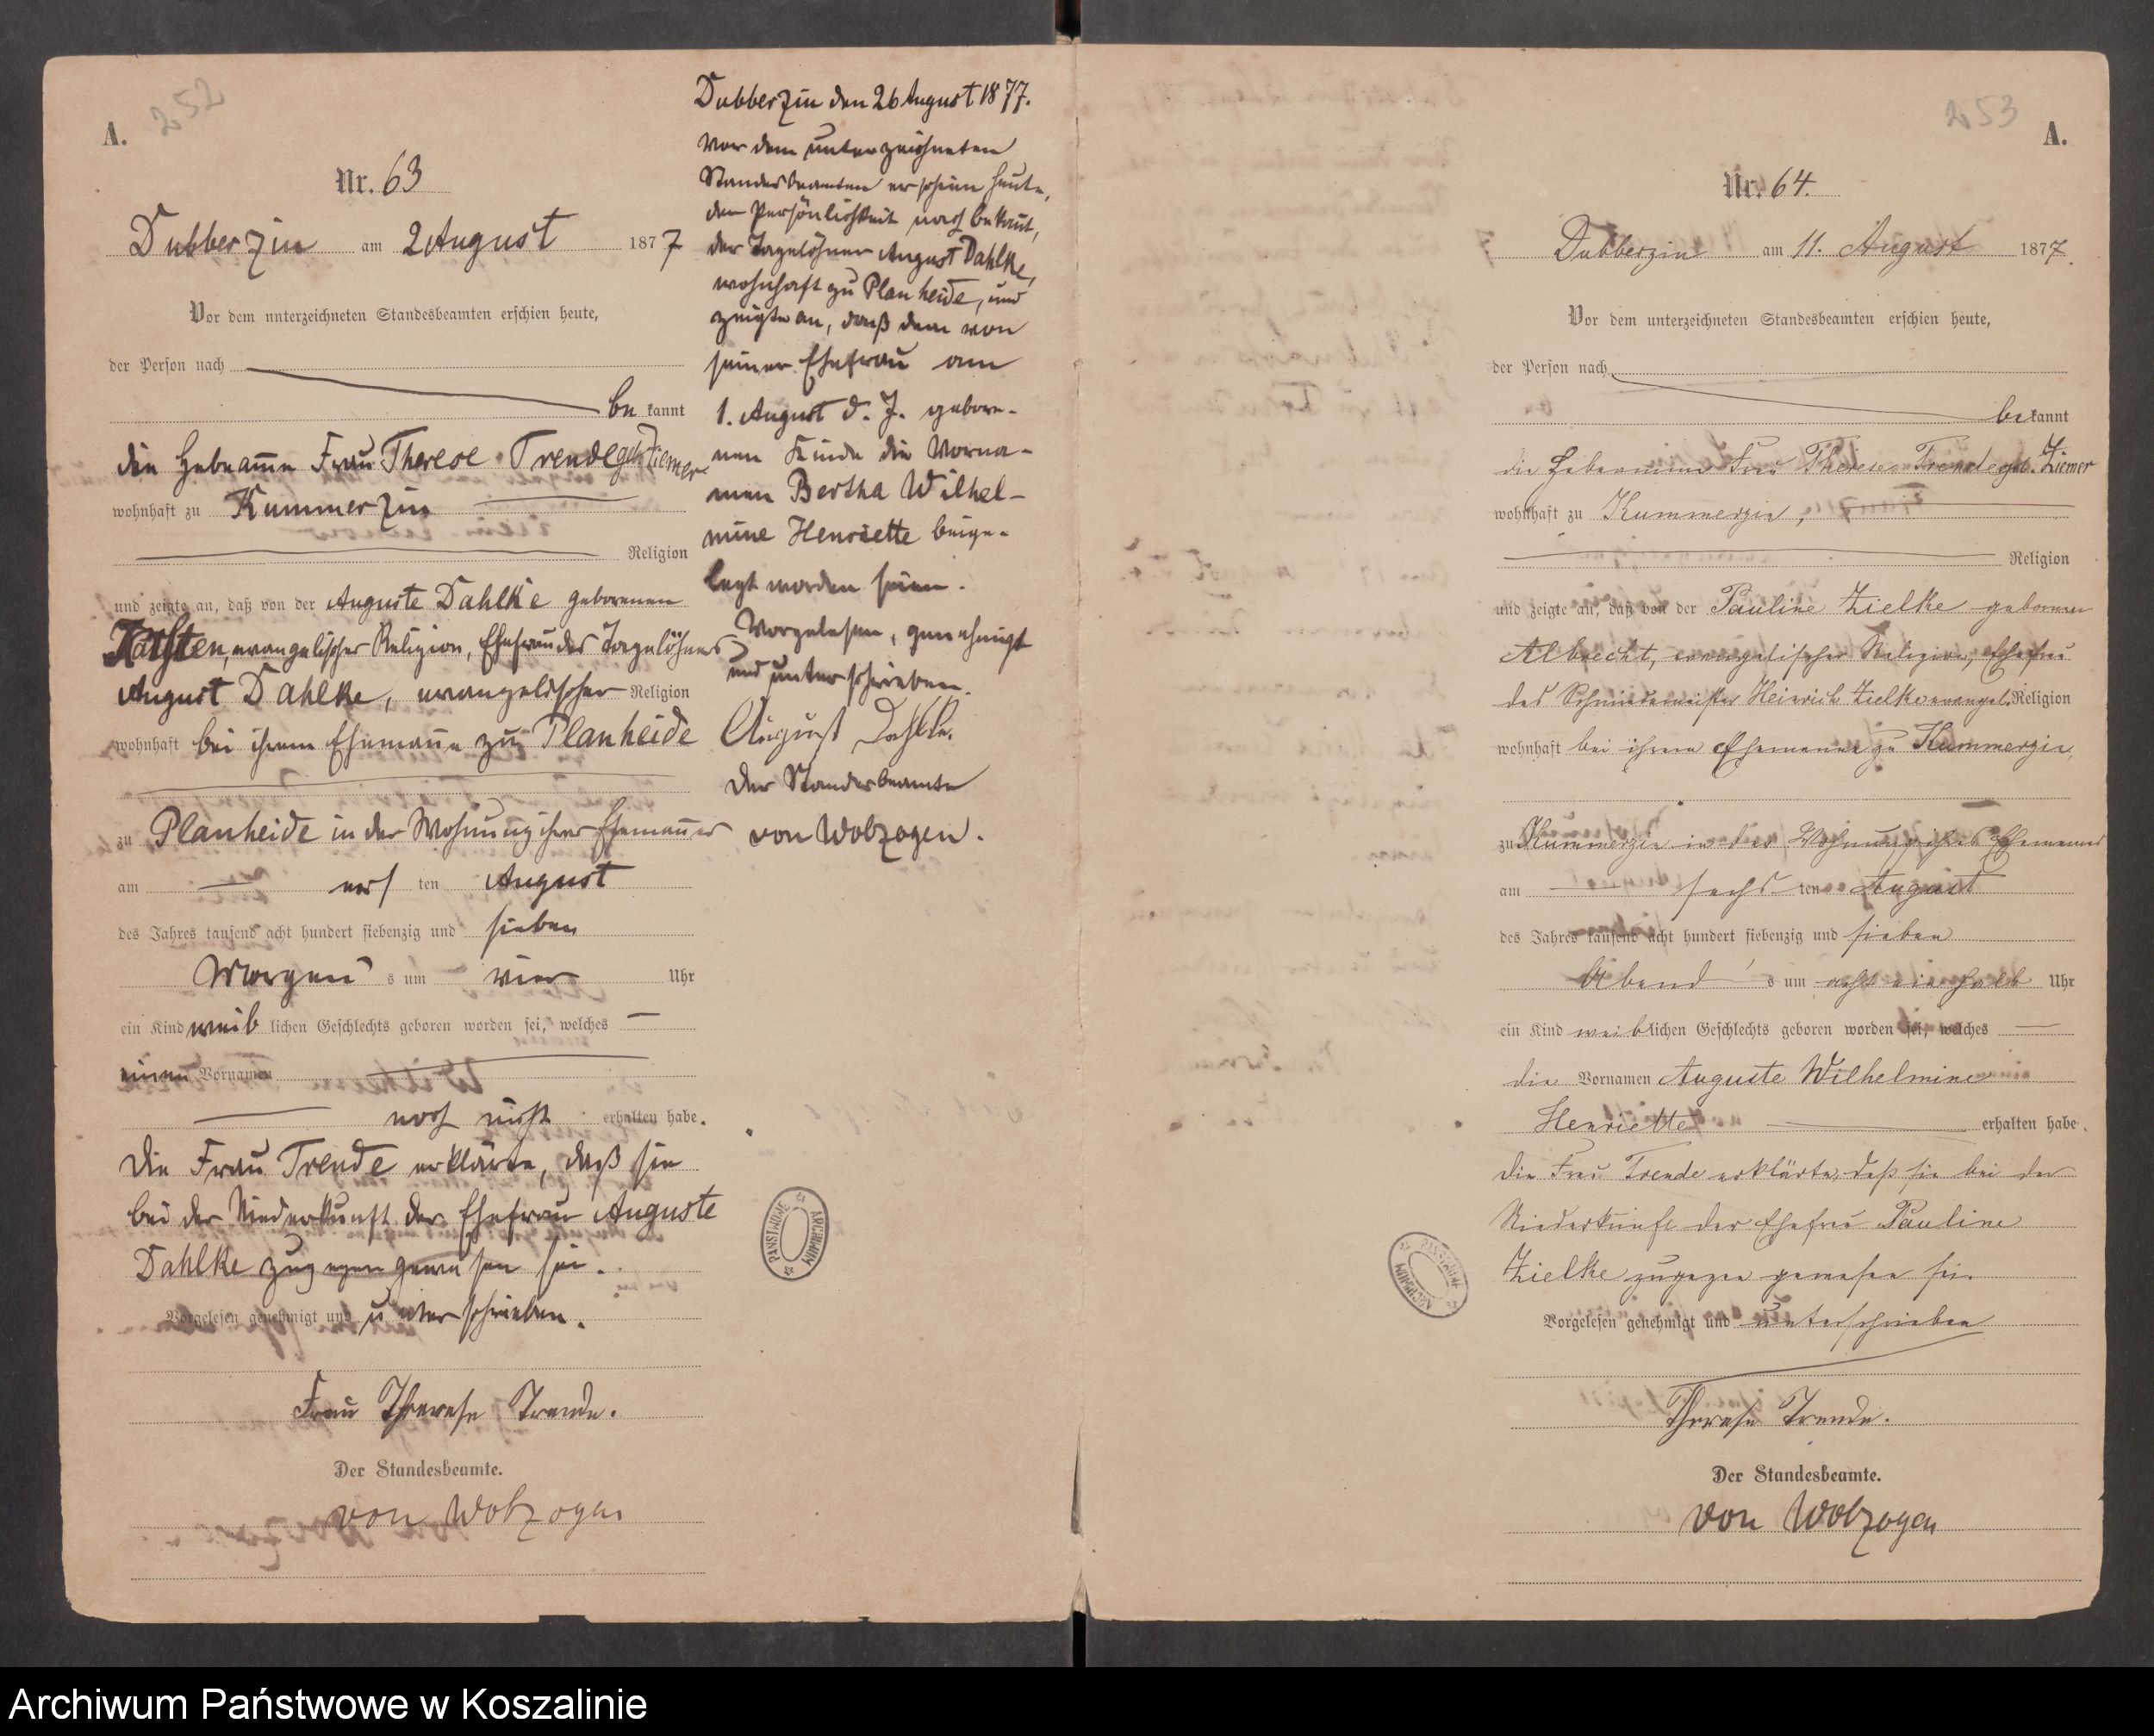 252
A.
Nr. 63
Dubberzin am 2 August 1877
Vor dem unterzeichneten Standesbeamten erschien heute,
der Person nach
be kannt
die Hebamme Frau Therese Trende geb. Ziemer
wohnhaft zu Kummerzin
Religion
und zeigte an, daß von der Auguste Dahlke geborenen
evangelischer Religion, Ehefrau des Tagelöhners
August Dahlke, evangelischer Religion
wohnhaft bei ihrem Ehemanne zu Planheide
zu Planheide in der Wohnung ihres Ehemannes
am ers ten August
des Jahres tausend acht hundert siebenzig und sieben
Morgen s um vier Uhr
ein Kind weib lichen Geschlechts geboren worden sei, welches
einen Vornamen
noch nicht erhalten habe.
Die Frau Trende erklärte, daß sie
bei der Niederkunft der Ehefrau Auguste
Dahlke zugegen gewesen sei.
Vorgelesen genehmigt und unterschrieben.
Frau Therese Trende.
Der Standesbeamte.
von Wolzogen
Dubberzin den 26 August 1877.
Vor dem unterzeichneten
Standesbeamten erschien heute,
der Persönlichkeit nach bekannt,
der Tagelöhner August Dahlke,
wohnhaft zu Planheide, und
zeigte an, daß dem von
seiner Ehefrau am
1. August d. J. gebore-
nen Kinde die Vorna-
men Bertha Wilhel-
mine Henriette beige-
legt worden seien.
Vorgelesen, genehmigt
und unterschrieben.
August Dahlke.
Der Standesbeamte
von Wolzogen.
PAŃSTWOWE ARCHIWUM
253
A.
Nr. 64.
Dubberzin am 11. August 1877.
Vor dem unterzeichneten Standesbeamten erschien heute,
der Person nach
be kannt
die Hebamme Frau Therese Trende geb. Ziemer
wohnhaft zu Kummerzin,
Religion
und zeigte an, daß von der Pauline Zielke geborenen
Albrecht, evangelischer Religion, Ehefrau
des Schmiedemeister Heinrich Zielke evangel. Religion
wohnhaft bei ihrem Ehemanne zu Kummerzin,
zu Kummerzin in der Wohnung ihres Ehemannes
am sechs ten August
des Jahres tausend acht hundert siebenzig und sieben
Abend s um acht einhalb Uhr
ein Kind weiblichen Geschlechts geboren worden sei, welches
die Vornamen Auguste Wilhelmine
Henriette erhalten habe.
Die Frau Trende erklärte, daß sie bei der
Niederkunft der Ehefrau Pauline
Zielke zugegen gewesen sei.
Vorgelesen genehmigt und unterschrieben
Therese Trende.
Der Standesbeamte.
von Wolzogen
PAŃSTWOWE ARCHIWUM
Archiwum Państwowe w Koszalinie